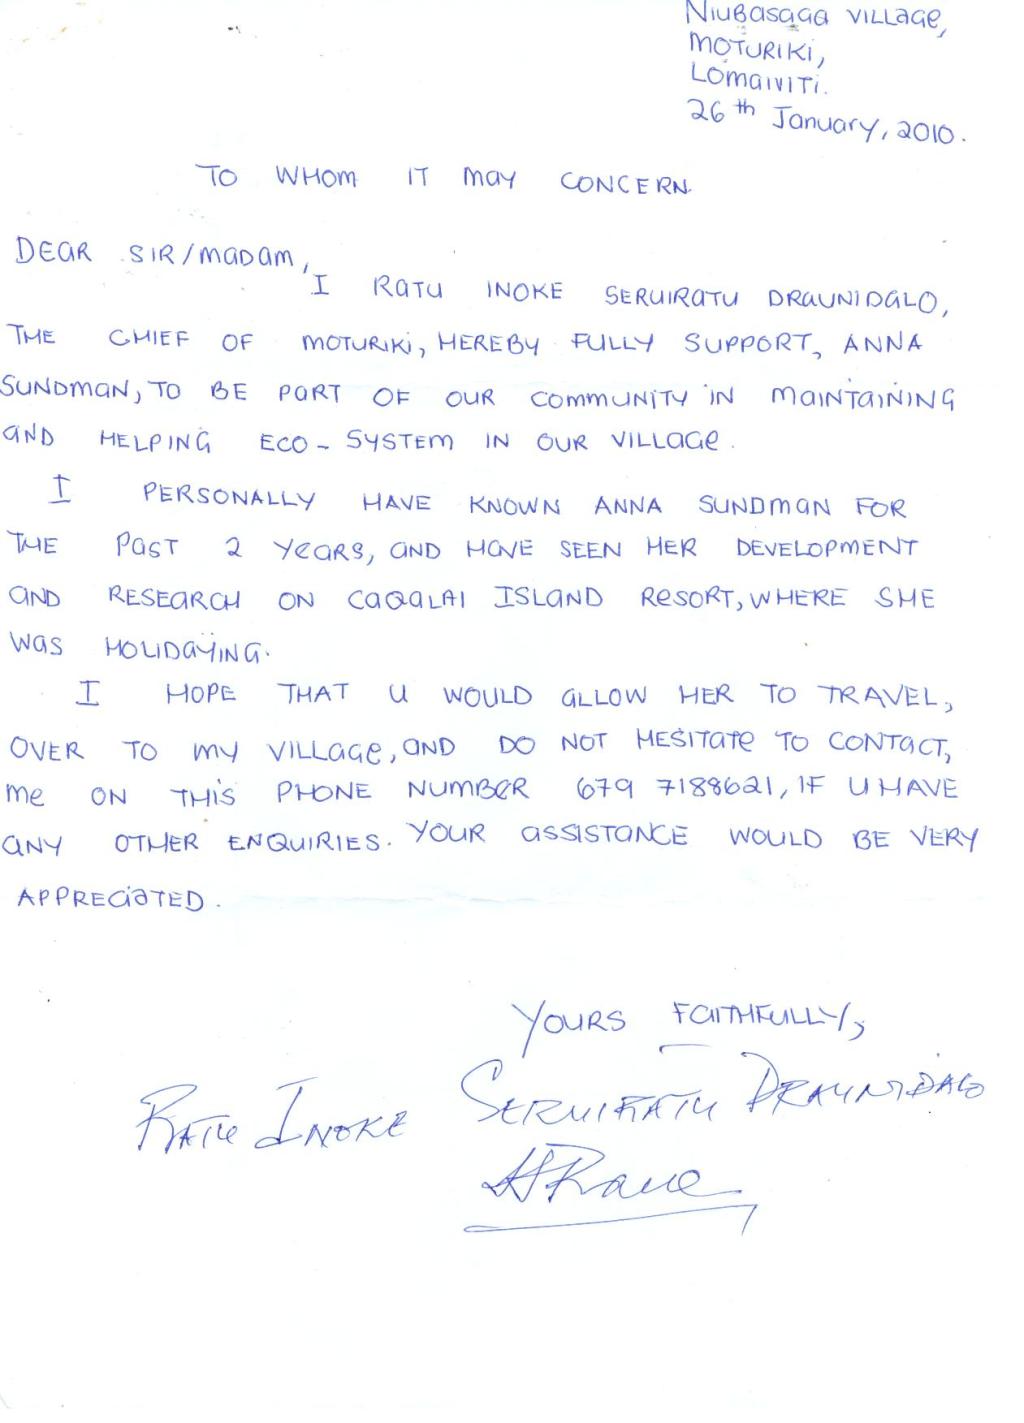 Niubasaga Village,
Moturiki,
Lomaiviti.
26th January, 2010.
TO WHOM IT MAY CONCERN.
DEAR SIR/MADAM,
I RATU INOKE SERUIRATU DRAUNIDALO,
THE CHIEF OF MOTURIKI, HEREBY FULLY SUPPORT, ANNA
SUNDMAN, TO BE PART OF OUR COMMUNITY IN MAINTAINING
AND HELPING ECO-SYSTEM IN OUR VILLAGE.
I PERSONALLY HAVE KNOWN ANNA SUNDMAN FOR
THE PAST 2 YEARS, AND HAVE SEEN HER DEVELOPMENT
AND RESEARCH ON CAQALAI ISLAND RESORT, WHERE SHE
WAS HOLIDAYING.
I HOPE THAT U WOULD ALLOW HER TO TRAVEL,
OVER TO MY VILLAGE, AND DO NOT HESITATE TO CONTACT,
ME ON THIS PHONE NUMBER 679 7188621, IF U HAVE
ANY OTHER ENQUIRIES. YOUR ASSISTANCE WOULD BE VERY
APPRECIATED.
YOURS FAITHFULLY,
RATU INOKE SERUIRATU DRAUNIDALO